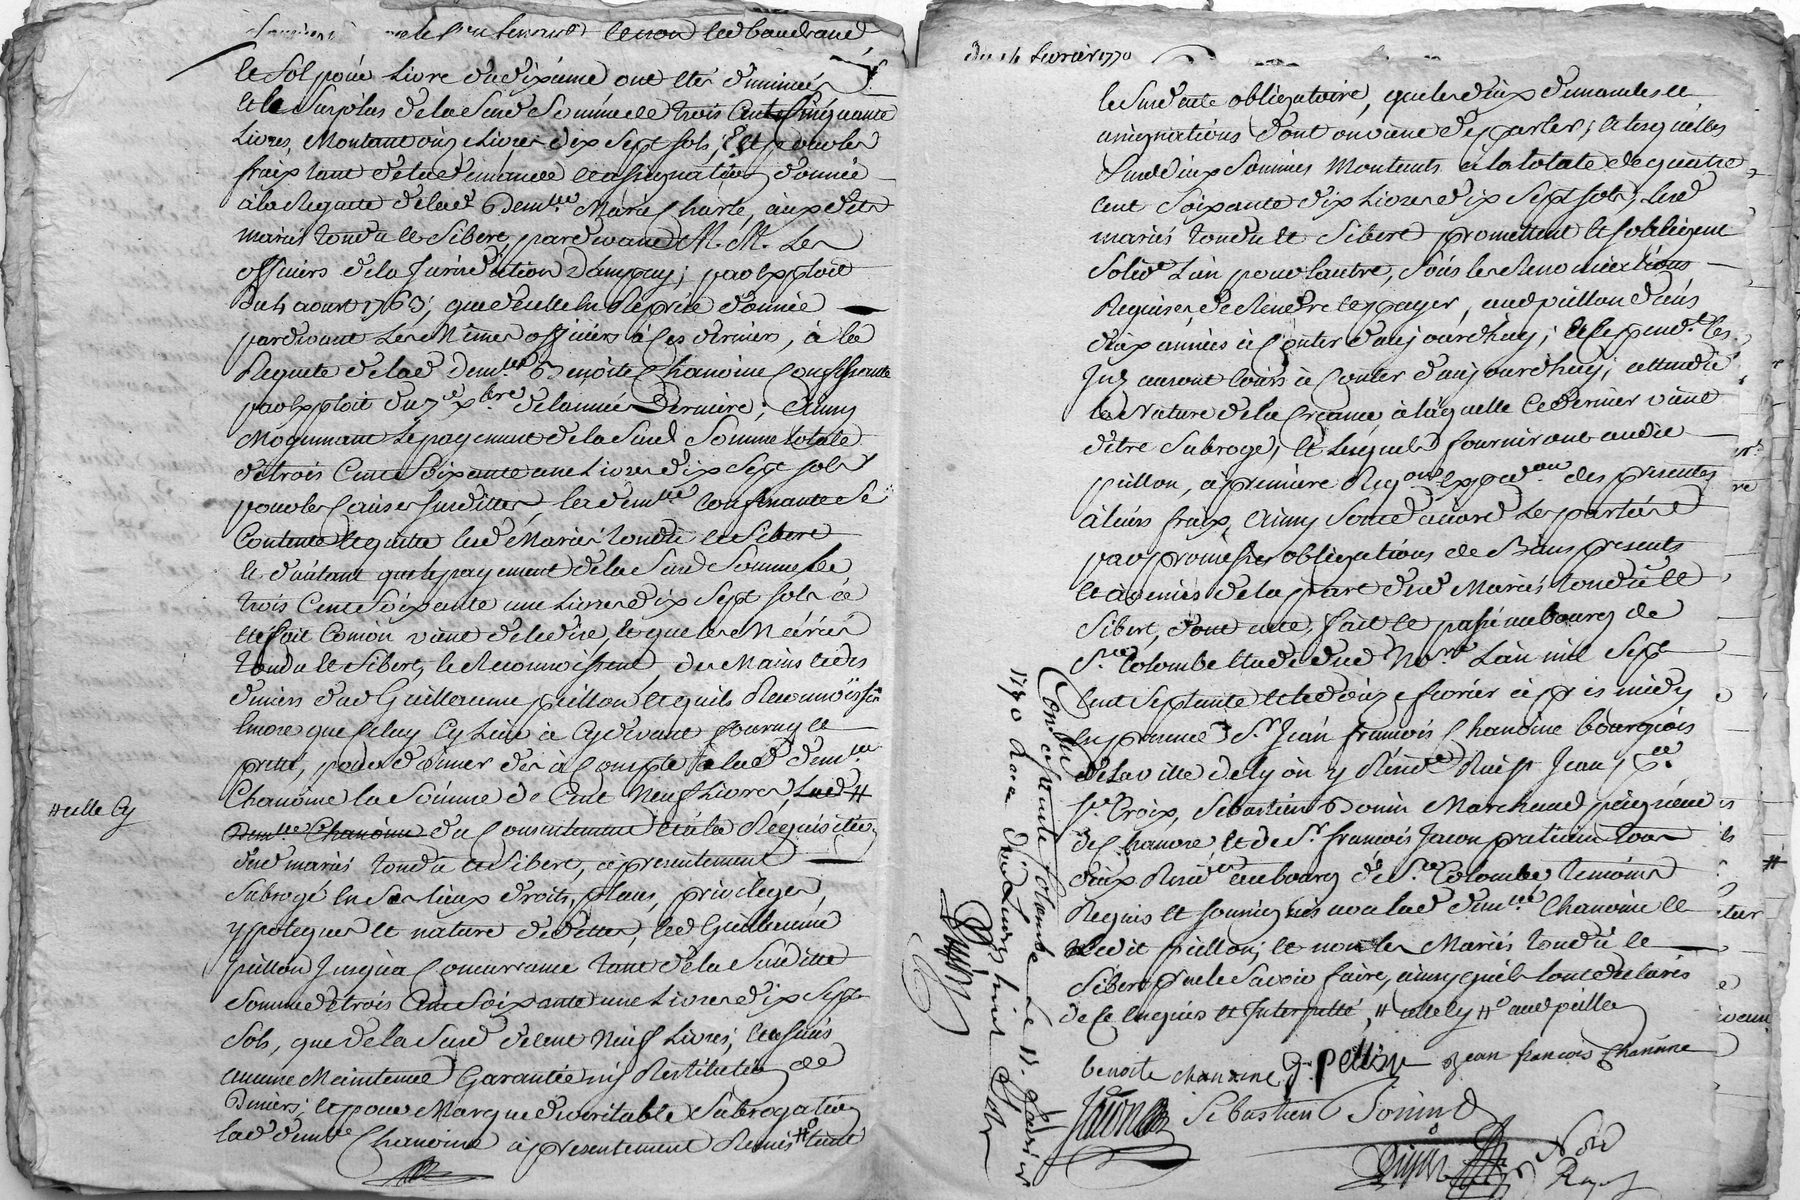 le sol pour Livre du dixieme ont etés diminués
et le surplus de la susd somme de trois cent cinquante
Livres, Montant onze Livres dix sept sols; Et pour les
fraix tant de la demande et assignation donnée
à la Requete de lad demlle Marie Charle, aux dits
mariés Tondu et Sibert, pardevant M. M. Les
officiers de la Jurisdiction Dampuy; par Exploit
du 4 aoust 1763, que de celle en Reprise donnée
pardevant Les Mêmes officiers à ces derniers, à la
Requete de lad demlle Benoite Chanoine Confessante
par Exploit du 7e xbre de l'année Derniere; Ainsy
Moyennant Le payement de la susd Somme totale
de trois Cent Soixante une Livres dix sept sols
pour les Causes susdittes, lad demlle Confessante se
Contente et quitte lesd Mariés Tondu et Sibert
et d'autant que le payement de la susd Somme de
trois Cent Soixante une Livres dix sept sols a
été fait Comon vient de le dire, et que les Mariés
Tondu et Sibert, le Reconnoissent des Mains et des
deniers dud Guillaume pillon et quils Reconnoissent
Encore que Celuy Cy Leur a Cydevant fourny et
preté, pour donner des à Compte à lad demlle
Chanoine la Somme de Cent Neuf Livres, Lad #
# icelle Cy
demlle Chanoine du Consentement et à la Requisition
desd mariés Tondu et Sibert, a présentement
Subrogé en Ses lieux droits, place, privileges,
ypoteques et nature de dettes, led Guillaume
pillon Jusqu'a Concurrance tant de la Susditte
Somme de trois Cent Soixante une Livres dix Sept
Sols, que de la Susd de cent Neuf Livres; Et sans
aucune Maintenue Garantie ny Restitution de
Deniers; et pour Marque de veritable Subrogation
lad demlle Chanoine a présentement Remis #
Du 11 fevrier 1770
le Susd acte obligatoire, que les deux demandes et
assignations dont on vient de parler; Et lesquelles
Susd deux Sommes Montent à la totale de quatre
cent Soixante dix Livres dix Sept sols; Lesd
mariés Tondu et Sibert promettent et s'obligent
Solid L'un pour l'autre, sous les Renonciations
Requises, de Rendre et payer, aud pillon dans
deux années à Conter d'aujourd'huy; et Cependt les
Jnz auront Cours à Conter d'aujourd'huy; attendu
la Nature de la Creance à laquelle Ce dernier vient
d'être Subrogé, Et Lesquels fourniront audit
pillon, à premiere Reqon Expedon des presentes
à leurs fraix, Ainsy Sont d'accord Les parties
par promesses obligations de Biens presents
et à venirs de la part desd Mariés Tondu et
Sibert, dont acte, fait et passé au bourg de
Ste Colombe Etude dud Nore L'an mil Sept
Cent Septante et le onze fevrier après midy
En presence de Sr Jean francois Chanoine bourgeois
de La ville de Lyon y Residt Ruë St Jean pse
Ste Croix, Sebastien Bonin Marchand peigneur
de Chanvre et de Sr francois Jacon praticien tous
deux Residts au bourg de Ste Colombe temoins
Requis et soussignés avec lad demlle Chanoine et
ledit pillon; et non les Mariés Tondu et
Sibert pour ne le Savoir faire, ainsy quils l'ont declarés
de ce Enquis et Interpellé, # icelle Cy #
benoite chanoine G. pellon Jean francois Chanoine
Jacon Sebastien Bonin
Dujast
Con. à Ste Colombe Le 11. fevrier
1770